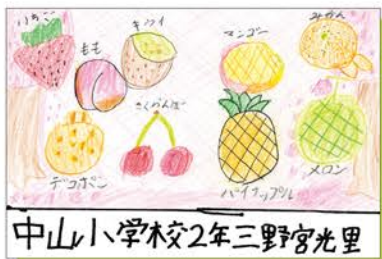 いちご
もも
キウイ
マンゴー
みかん
さくらんぼ
デコポン
パイナップル
メロン
中山小学校2年三野宮光里